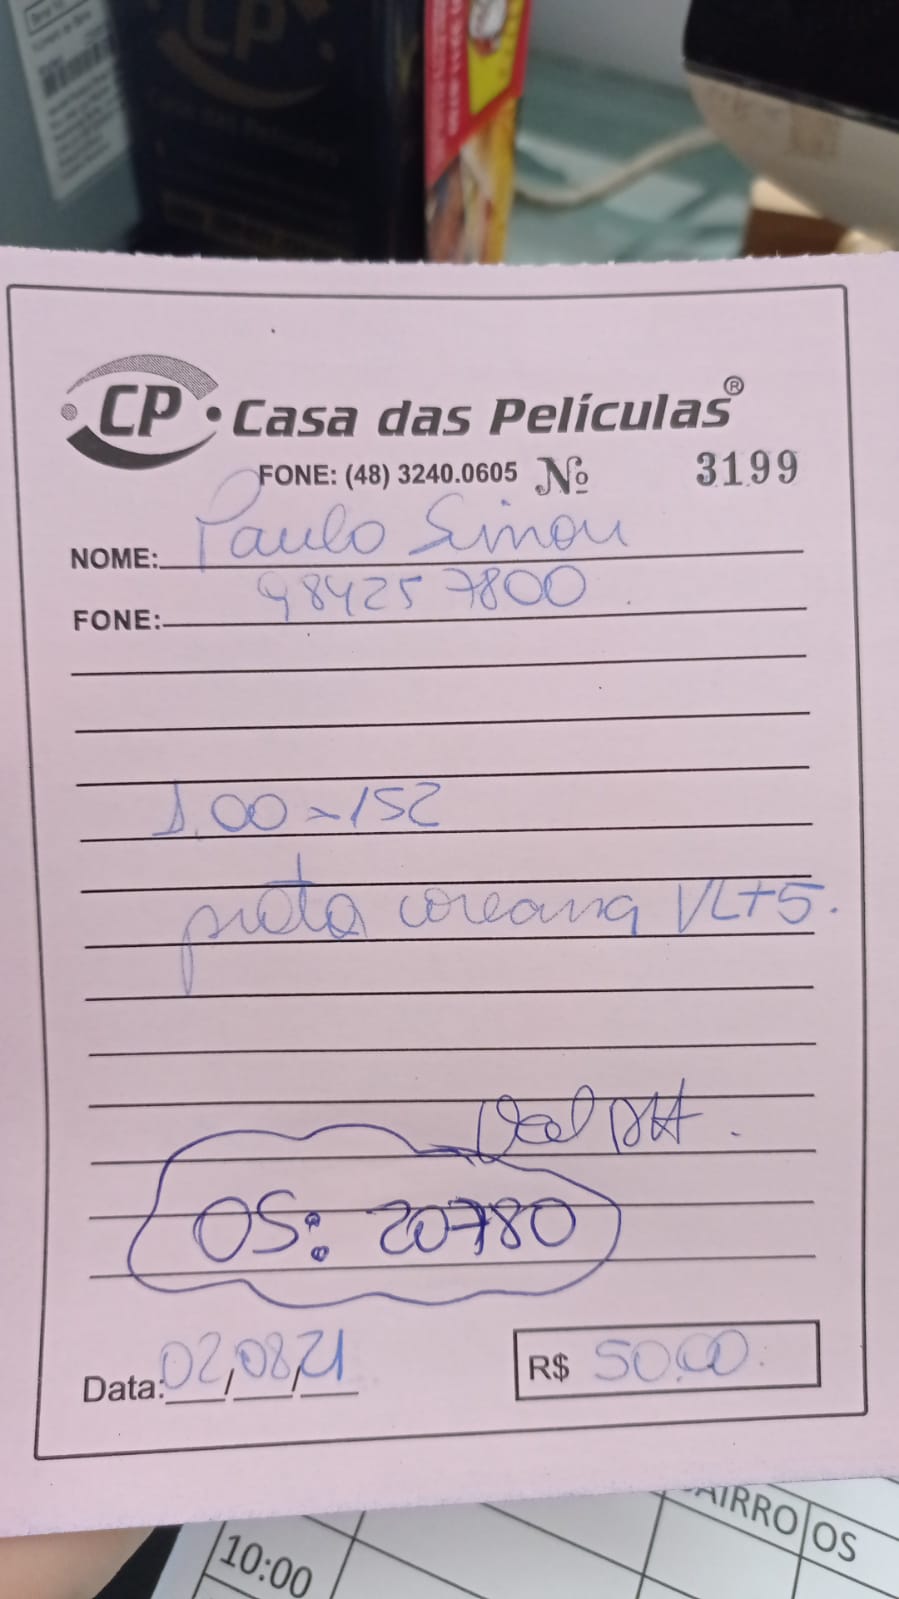 CP
CP • Casa das Películas®
FONE: (48) 3240.0605 Nº 3199
NOME: Paulo Simon
FONE: 984257800
1,00 x 152
preta coreana VLT 5.
OS: 20780
Data: 02/08/21
R$ 50,00
BAIRRO OS
10:00